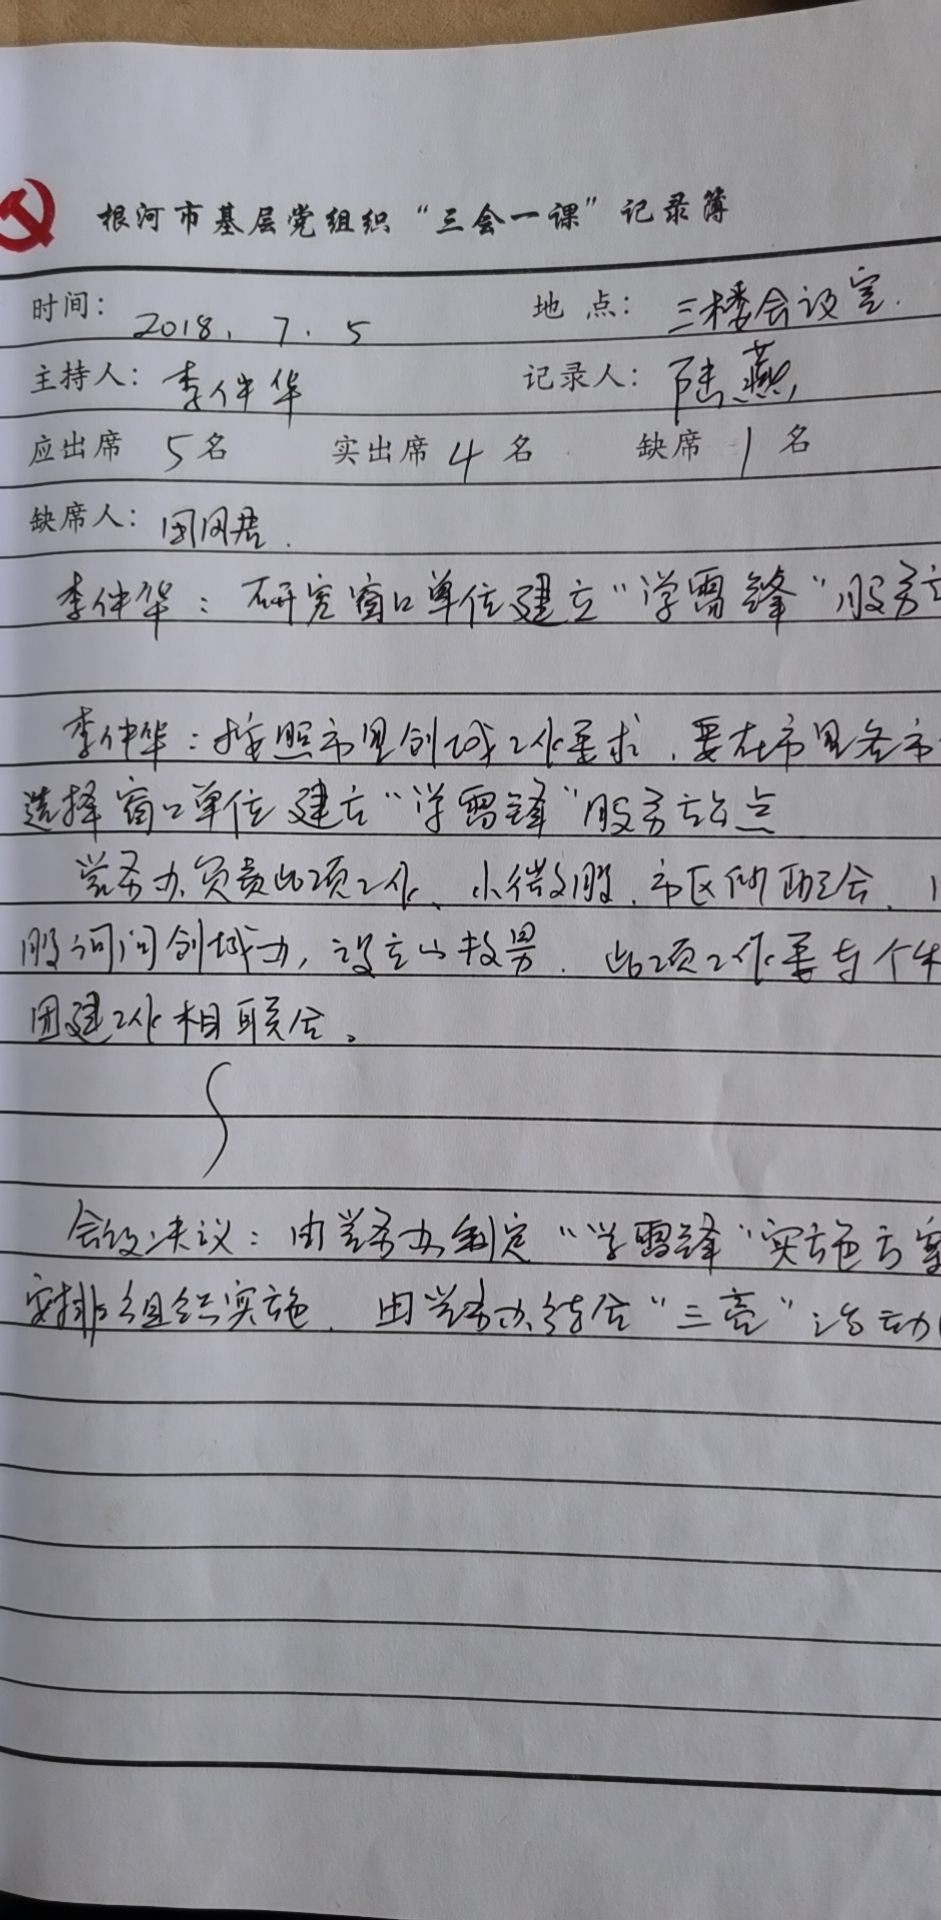 根河市基层党组织“三会一课”记录簿
时间: 2018.7.5 地点: 三楼会议室.
主持人: 李仲华 记录人: 陆燕
应出席 5名 实出席 4名 缺席 1名
缺席人:
李仲华: 研究窗口单位建立“学雷锋”服务
李仲华: 按照市里创城工作要求,要在市里各市
选择窗口单位建立“学雷锋”服务站点
党务办负责此项工作、小微股、市区所配合、
股询问创城办, 此项工作要与个
团建工作相联合。
会议决议: 由党务办制定“学雷锋”实施方案
安排组织实施. 由党务办结合“三亮”活动